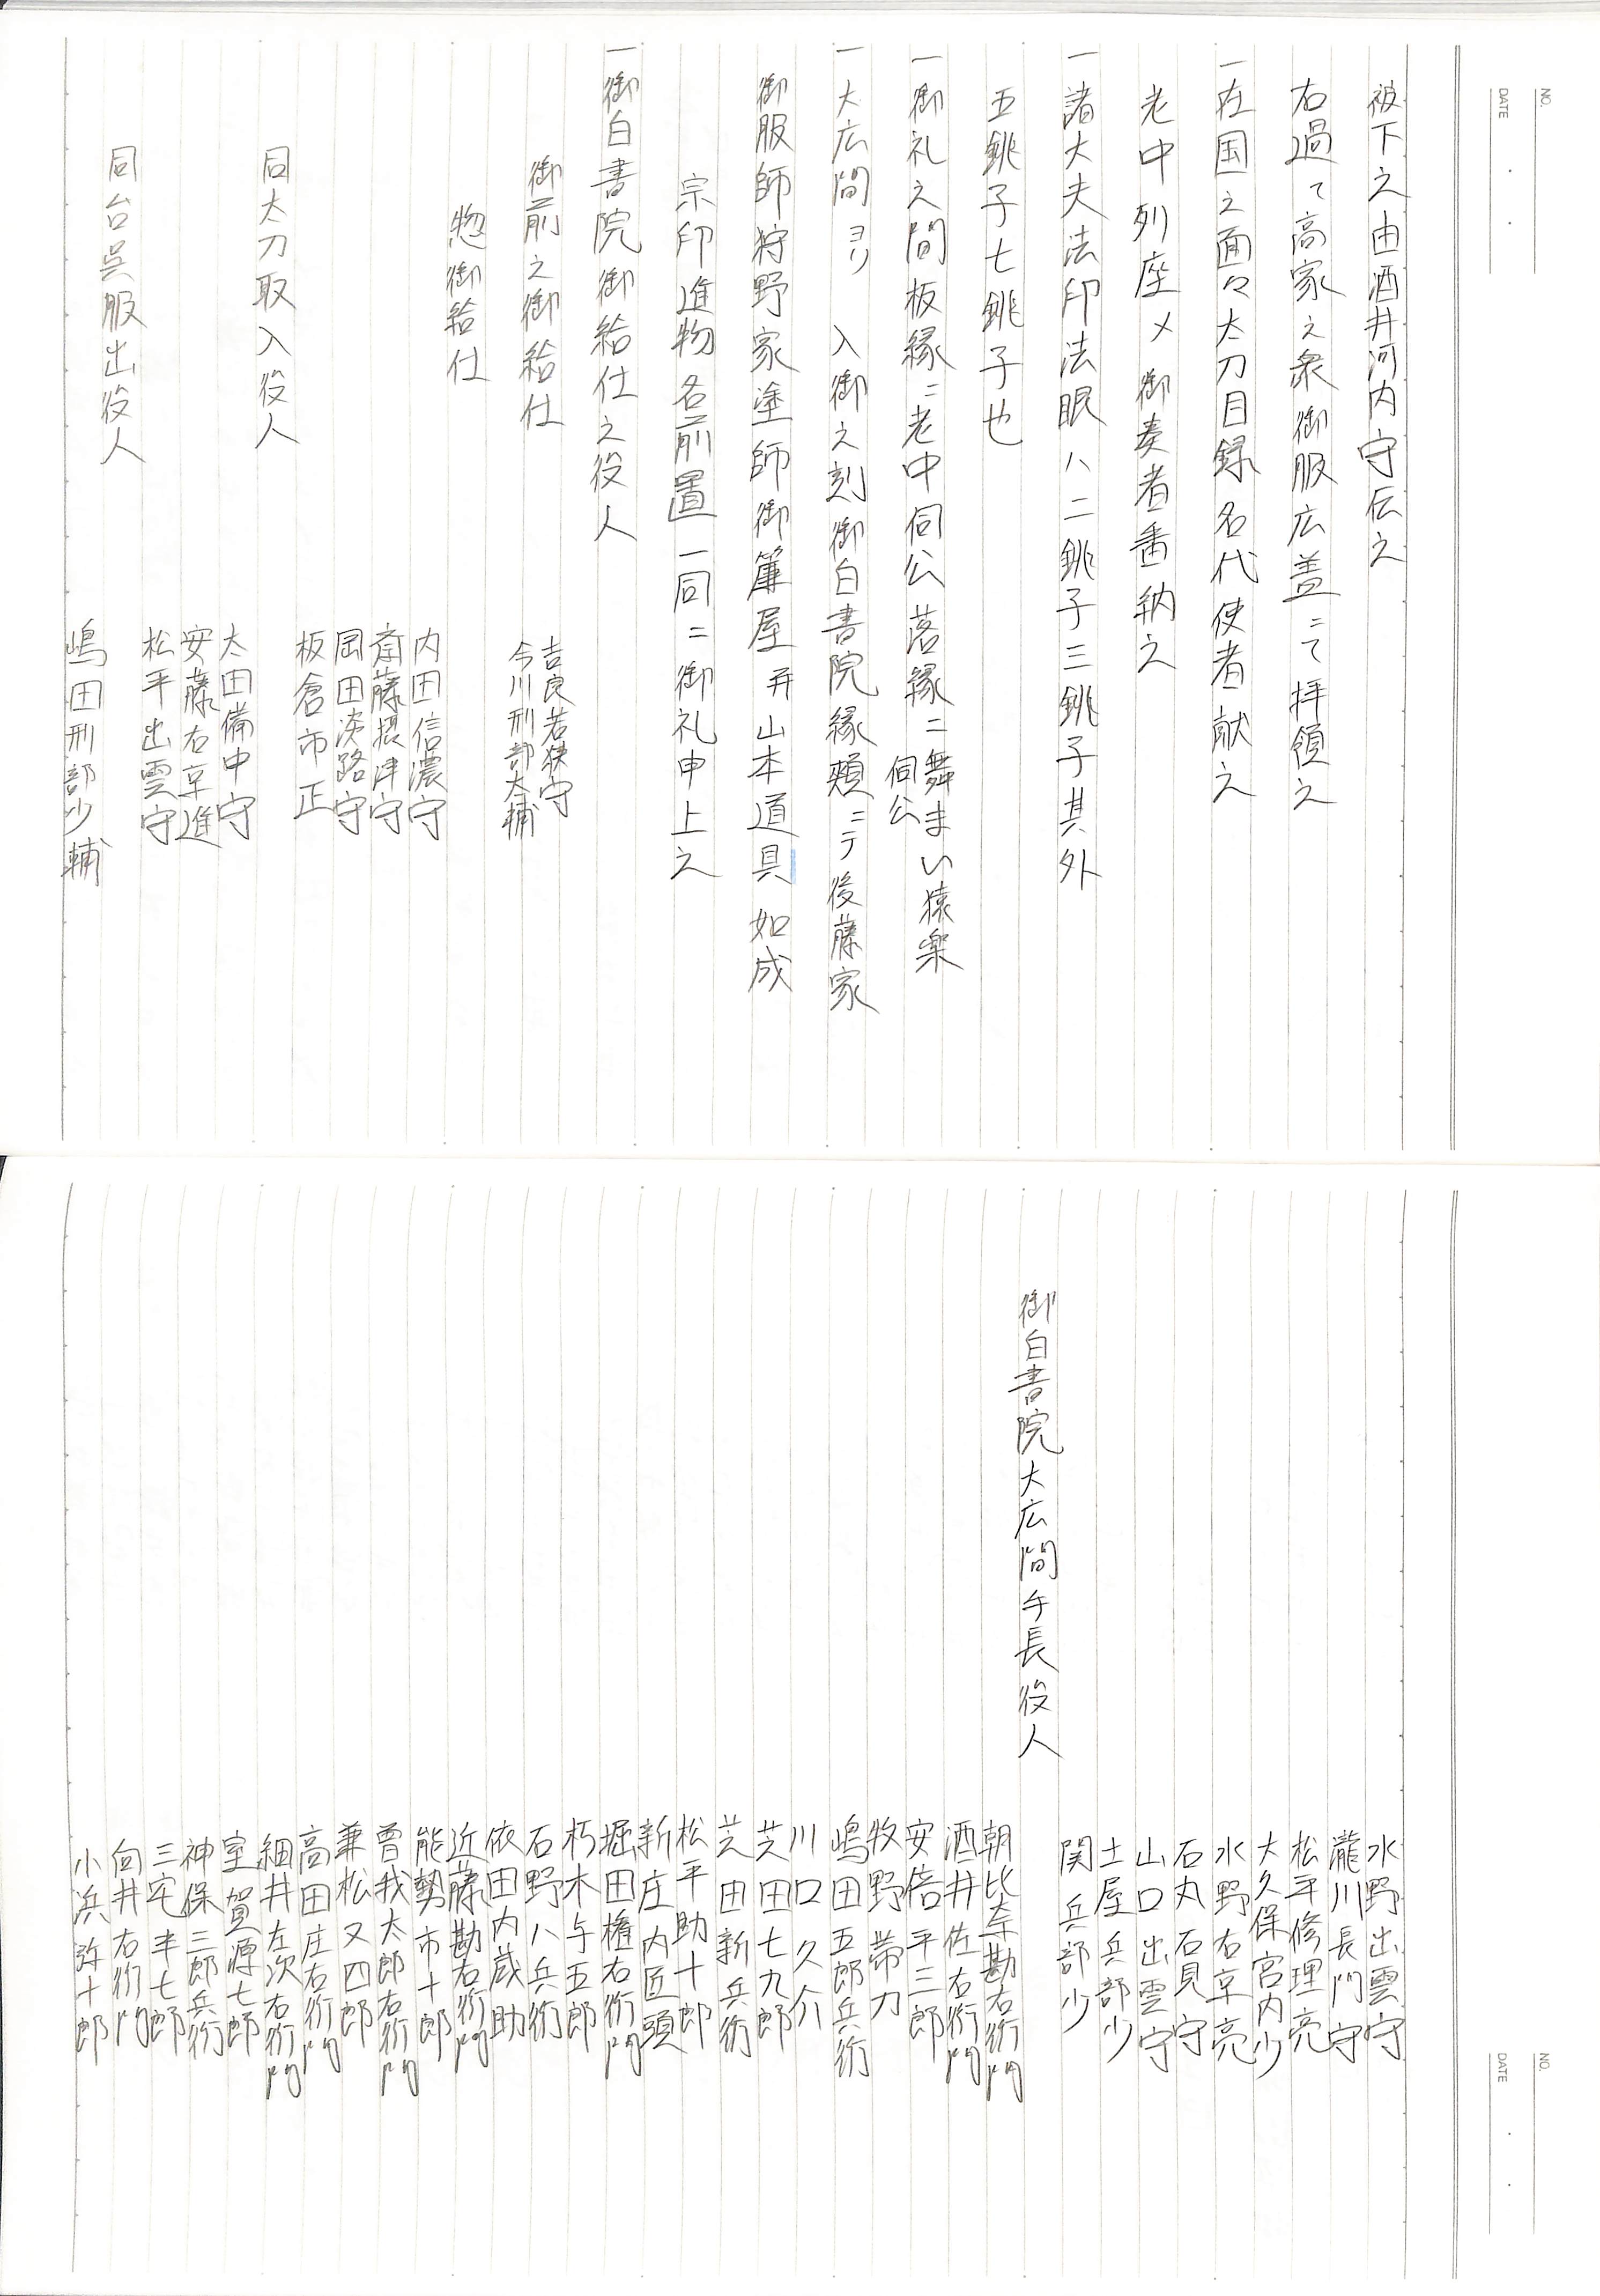 NO.
DATE
被下之由酒井河内守伝之
右過て高家之衆御服広盖ニて拝領之
一在国之面々太刀目録名代使者献之
老中列座〆御奏者番納之
一諸大夫法印法眼ハ二銚子三銚子其外
五銚子七銚子也
一御礼之間板縁ニ老中伺公落縁ニ舞まい猿楽
伺公
一大広間ヨリ 入御之刻御白書院縁頬ニテ後藤家
御服師狩野家塗師御簾屋并山本道具如成
宗印進物名前置一同ニ御礼申上之
一御白書院御給仕之役人
御前之御給仕
吉良若狭守
今川刑部大輔
惣御給仕
内田信濃守
斎藤摂津守
岡田淡路守
板倉市正
同太刀取入役人
太田備中守
安藤右京進
松平出雲守
同台呉服出役人
嶋田刑部少輔
NO.
DATE
水野出雲守
瀧川長門守
松平修理亮
大久保宮内少
水野右京亮
石丸石見守
山口出雲守
土屋兵部少
関兵部少
御白書院大広間手長役人
朝比奈勘右衛門
酒井佐右衛門
安倍平三郎
牧野帯刀
嶋田五郎兵衛
川口久介
芝田七九郎
芝田新兵衛
松平助十郎
新庄内匠頭
堀田権右衛門
朽木与五郎
石野八兵衛
依田内蔵助
近藤勘右衛門
能勢市十郎
曽我太郎右衛門
兼松又四郎
高田庄右衛門
細井左次右衛門
室賀源七郎
神保三郎兵衛
三宅半七郎
向井右衛門
小浜弥十郎